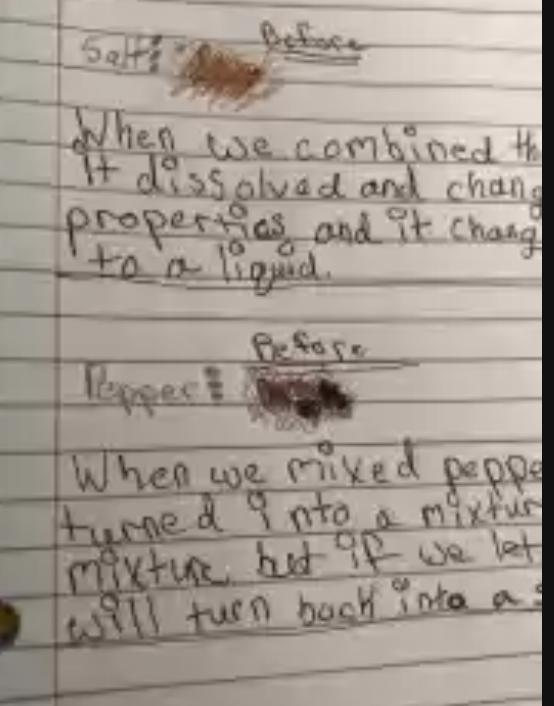 Before
Salt:
When we combined th
It dissolved and chang
properties, and it chang
to a liquid.
Before
Pepper:
When we mixed peppe
turned into a mixtur
mixture but if we let
will turn back into a s